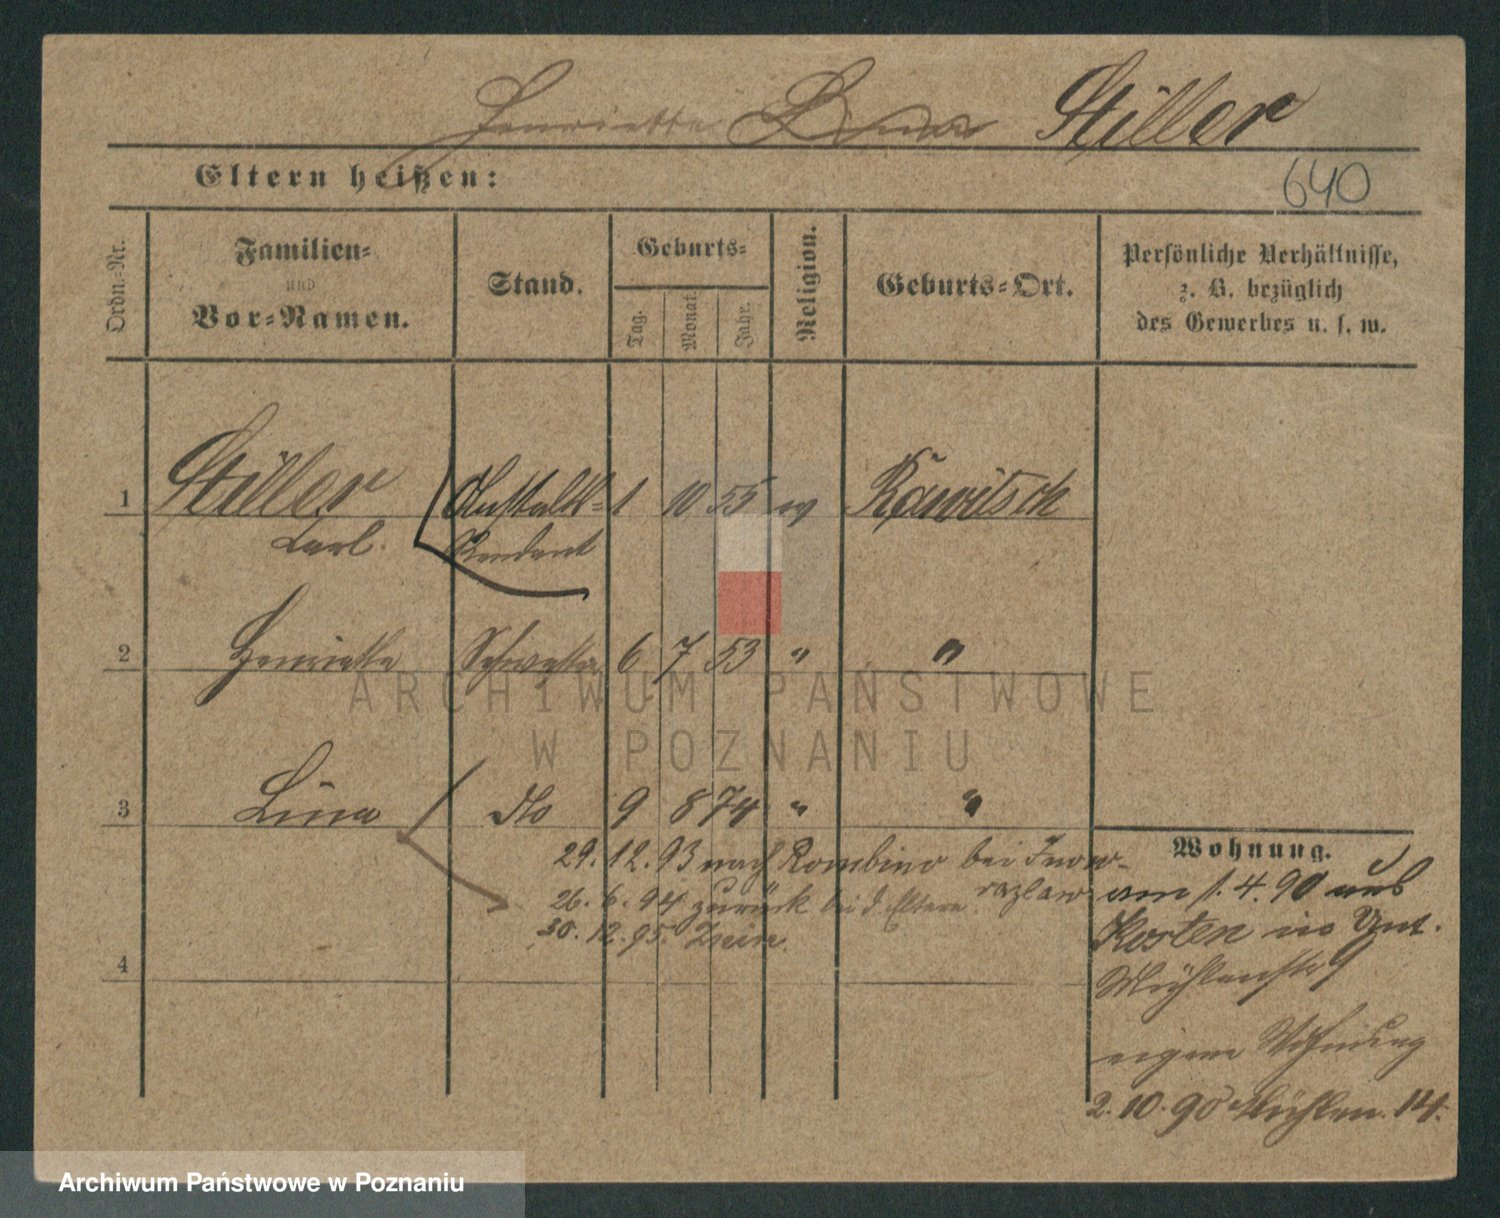 Henriette Lina Stiller
Eltern heißen:
640
Ordn.-Nr.
Familien-
und
Vor-Namen.
Stand.
Geburts-
Tag.
Monat.
Jahr.
Religion.
Geburts-Ort.
Persönliche Verhältnisse,
z. B. bezüglich
des Gewerbes u. s. w.
1 Stiller Anstalts- 1 10 55 ev Rawitsch
Carl. Rendant
2 Henriette Schwester 6 7 53 " "
ARCHIWUM PAŃSTWOWE
W POZNANIU
3 Lina do 9 8 74 " "
29. 12. 93 nach Rombino bei Inow-
razlaw
26. 6. 94 zurück bei d. Eltern
30. 12. 95. Znin.
4
Wohnung.
am 1. 4. 90 aus
Kosten in Unt.
Mühlenstr 9
eigene Wohnung
2. 10. 90 Mühlen. 14.
Archiwum Państwowe w Poznaniu